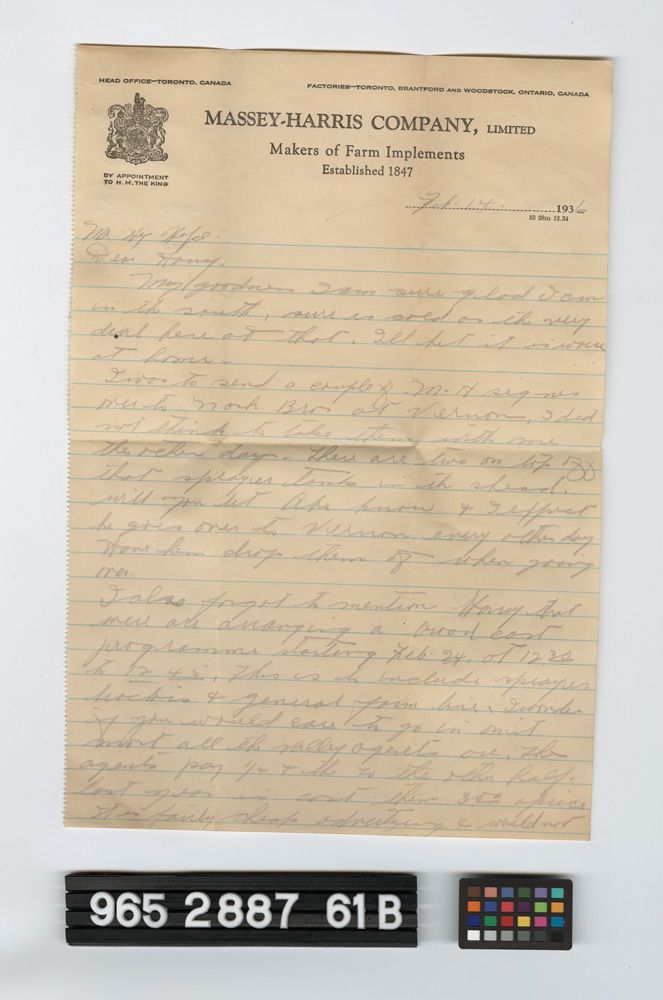 HEAD OFFICE—TORONTO, CANADA
FACTORIES—TORONTO, BRANTFORD AND WOODSTOCK, ONTARIO, CANADA
MASSEY-HARRIS COMPANY, LIMITED
Makers of Farm Implements
Established 1847
BY APPOINTMENT
TO H. M. THE KING
Feb. 14 1936
83 28m 12.34
Mr. Hy
Dear Harry,
My goodness I am sure glad I am
in the south, sure is cold as the very
devil here at that, I'll bet it is worse
at home.
I was to send a couple of M-H signs
over to Bros at Vernon, I did
not think to take them with me
the other day. There are two on top of
that sprayer tank in the shead.
will you let Abe know & I expect
he goes over to Vernon every other day
Have him drop them off when going
over.
I also forgot to mention Harry that
we are arranging a broad cast
programme starting Feb. 24. at 12 30
to 12 45. This is to include sprayer
& general farm line. I wonder
if you would care to go in on it
most all the valley agents are. The
agents pay 1/2 & the Co the other half.
last year is cost them 3 00 apiece
It is fairly cheap advertizing & would not
965 2887 61B